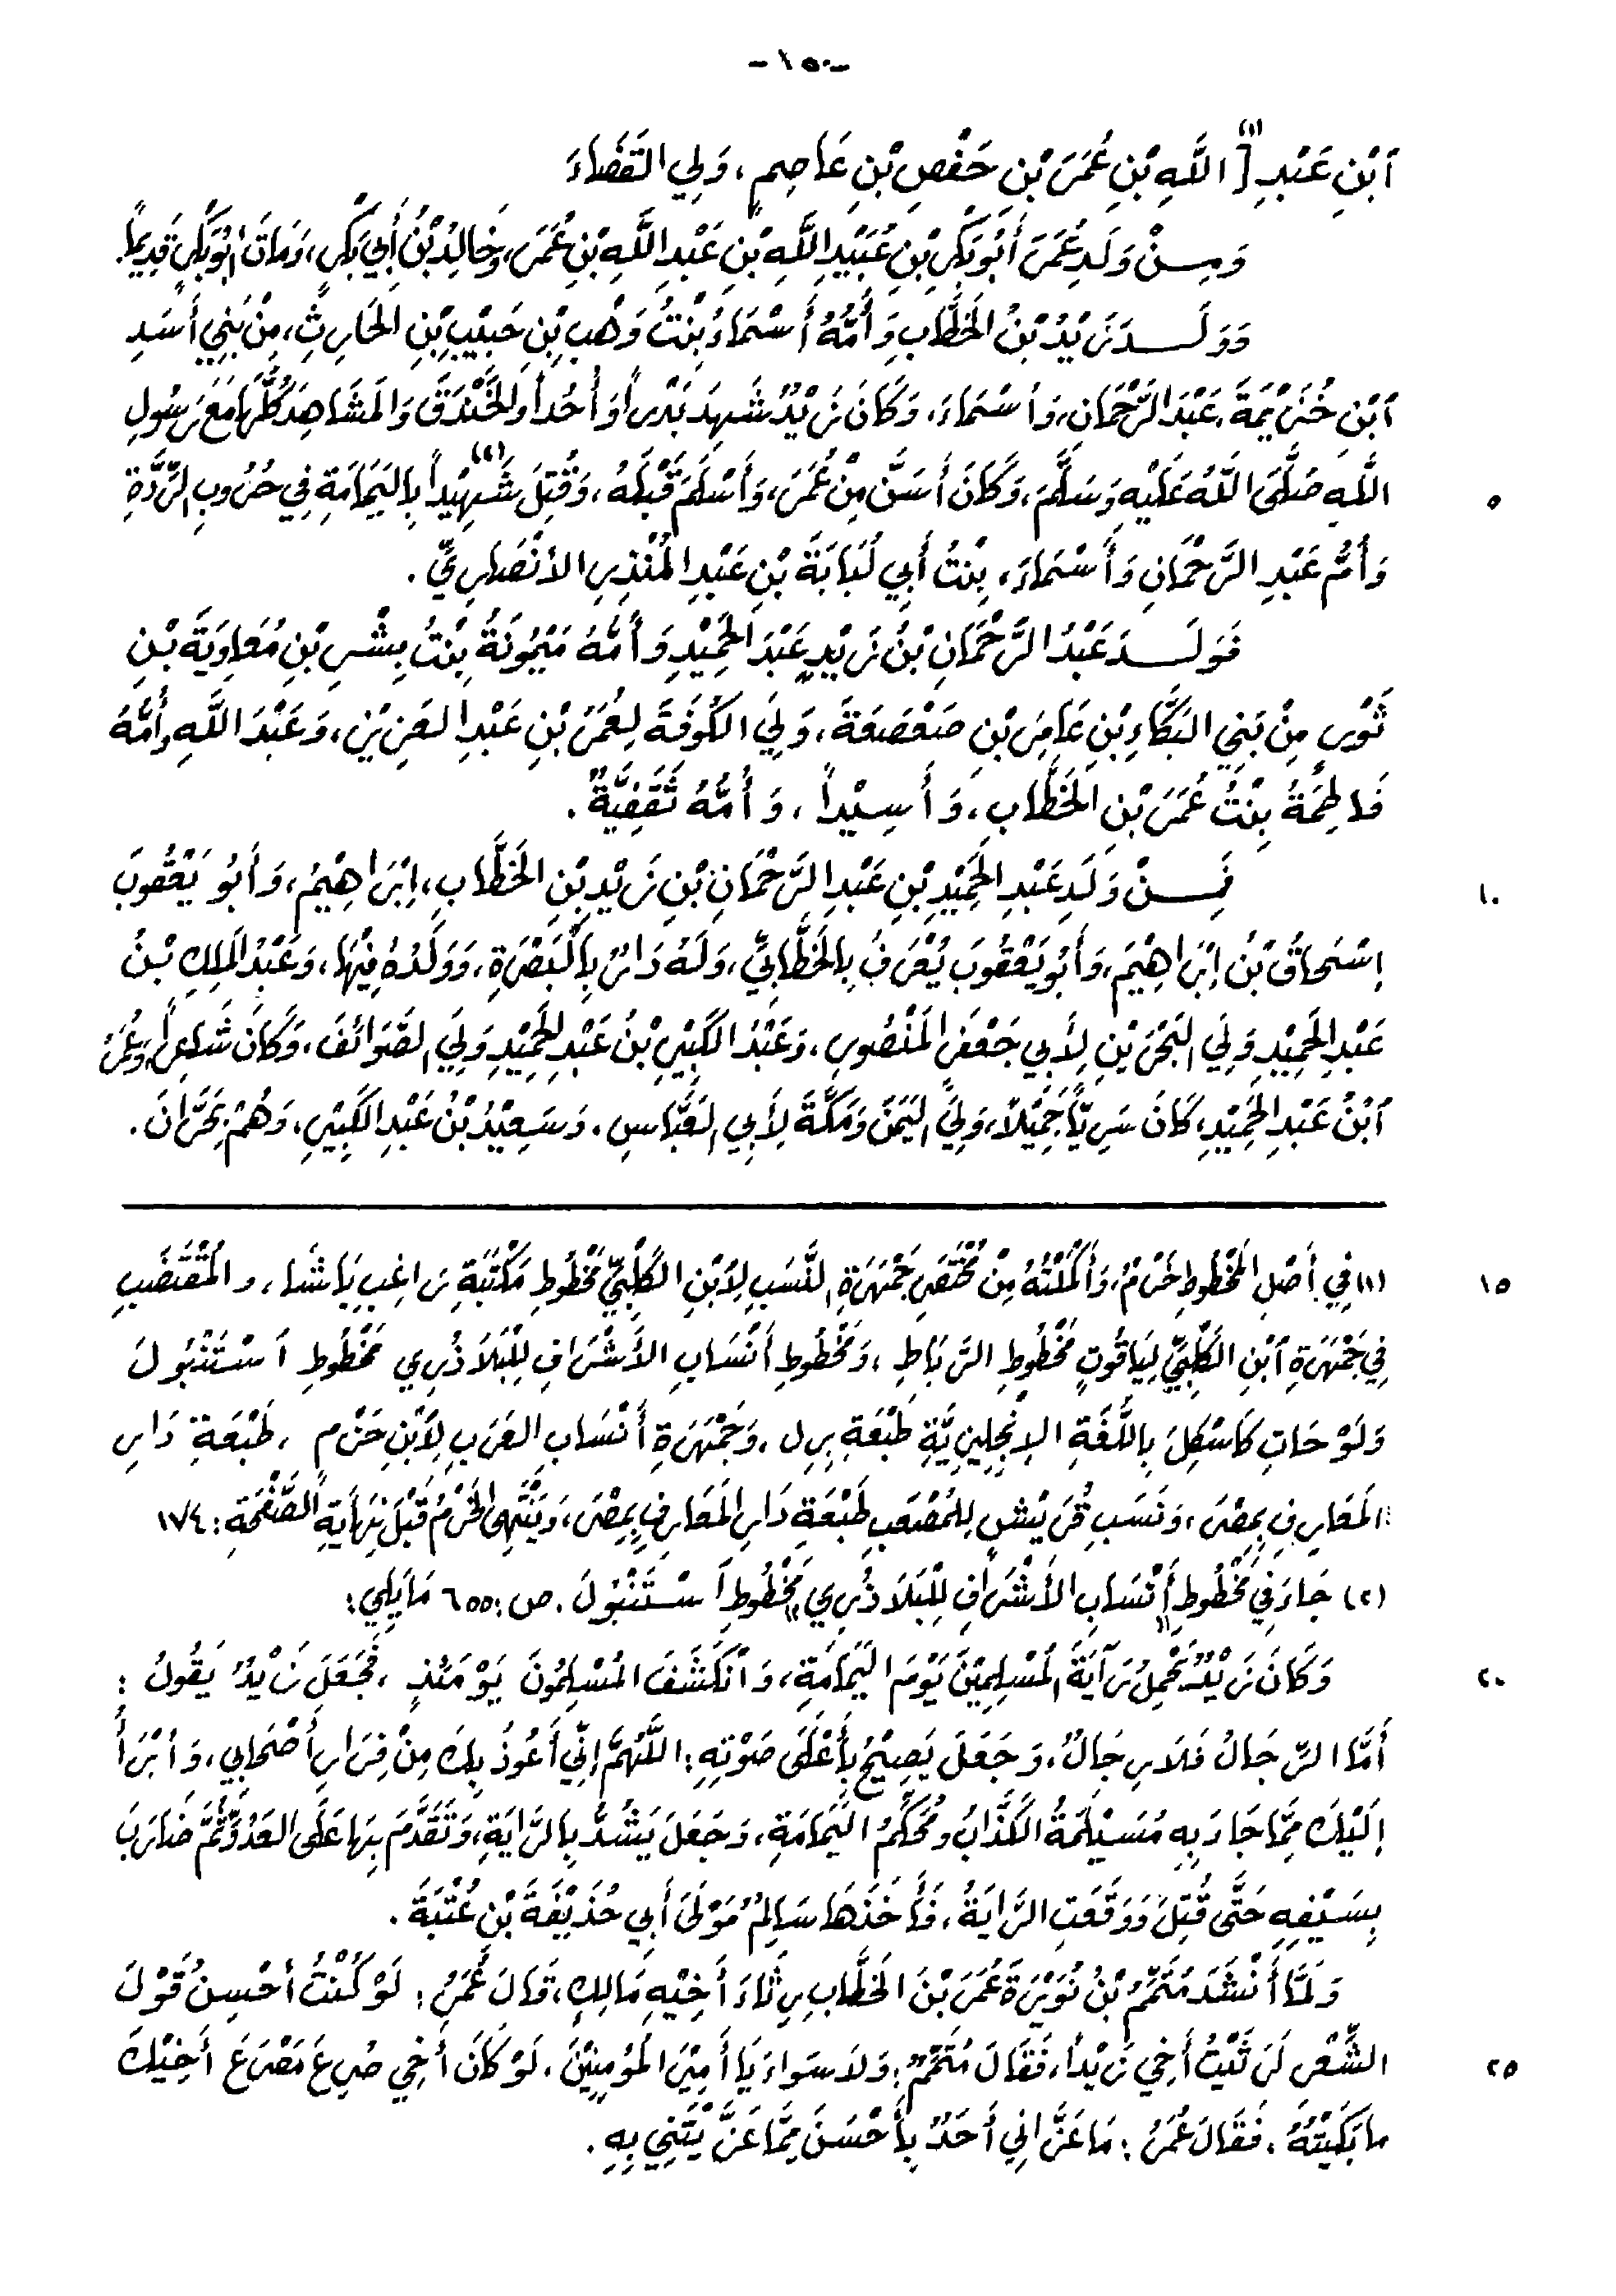 -١٥٠-
ٱبْنِ عَبْدِ [(١) اللَّهِ بْنِ عُمَرَ بْنِ حَفْصِ بْنِ عَاصِمٍ، وَلِي القَضَاءَ
وَمِنْ وَلَدِ عُمَرَ أَبُو بَكْرِ بْنِ عُبَيْدِ اللَّهِ بْنِ عَبْدِ اللَّهِ بْنِ عُمَرَ، وَخَالِدُ بْنُ أَبِي بَكْرٍ، وَمَاتَ أَبُو بَكْرٍ قَدِيماً.
وَوَلَدَ زَيْدُ بْنُ الخَطَّابِ وَأُمُّهُ أَسْمَاءُ بِنْتُ وَهْبِ بْنِ حَبِيْبِ بْنِ الحَارِثِ، مِنْ بَنِي أَسَدِ
ٱبْنِ خُزَيْمَةَ، عَبْدَ الرَّحْمَانِ، وَأَسْمَاءَ، وَكَانَ زَيْدٌ شَهِدَ بَدْراً وَأُحُداً وَالخَنْدَقَ وَالمَشَاهِدَ كُلَّهَا مَعَ رَسُولِ
اللَّهِ صَلَّى اللَّهُ عَلَيْهِ وَسَلَّمَ، وَكَانَ أَسَنَّ مِنْ عُمَرَ، وَأَسْلَمَ قَبْلَهُ، وَقُتِلَ شَهِيْداً (٢) بِاليَمَامَةِ فِي حُرُوبِ الرِّدَّةِ ٥
وَأُمُّ عَبْدِ الرَّحْمَانِ وَأَسْمَاءَ، بِنْتُ أَبِي لُبَابَةَ بْنِ عَبْدِ المُنْذِرِ الأَنْصَارِيِّ.
فَوَلَدَ عَبْدُ الرَّحْمَانِ بْنُ زَيْدٍ عَبْدَ الحَمِيْدِ وَأُمُّهُ مَيْمُونَةُ بِنْتُ بِشْرِ بْنِ مُعَاوِيَةَ بْنِ
ثَوْرٍ مِنْ بَنِي البَكَّاءِ بْنِ عَامِرِ بْنِ صَعْصَعَةَ، وَلِيَ الكُوفَةَ لِعُمَرَ بْنِ عَبْدِ العَزِيْزِ، وَعَبْدَ اللَّهِ وَأُمُّهُ
فَاطِمَةُ بِنْتُ عُمَرَ بْنِ الخَطَّابِ، وَأَسِيْداً، وَأُمُّهُ ثَقَفِيَّةٌ.
فَمِنْ وَلَدِ عَبْدِ الحَمِيْدِ بْنِ عَبْدِ الرَّحْمَانِ بْنِ زَيْدِ بْنِ الخَطَّابِ، إِبْرَاهِيْمُ، وَأَبُو يَعْقُوبَ ١٠
إِسْحَاقُ بْنُ إِبْرَاهِيْمَ، وَأَبُو يَعْقُوبَ يُعْرَفُ بِالخَطَّابِيِّ، وَلَهُ دَارٌ بِالْبَصْرَةِ، وَوَلَدُهُ فِيْهَا، وَعَبْدُ المَلِكِ بْنُ
عَبْدِ الحَمِيْدِ وَلِيَ البَحْرَيْنِ لِأَبِي جَعْفَرٍ المَنْصُورِ، وَعَبْدُ الكَبِيْرِ بْنُ عَبْدِ الحَمِيْدِ وَلِيَ الصَّوَائفَ، وَكَانَ شَاعِراً، وَعُمَرُ
ٱبْنُ عَبْدِ الحَمِيْدِ، كَانَ سَرِيّاً جَمِيْلاً، وَلِيَ اليَمَنَ وَمَكَّةَ لِأَبِي العَبَّاسِ. وَسَعِيْدُ بْنُ عَبْدِ الكَبِيْرِ، وَهُمْ بِحَرَّانَ.
(١) فِي أَصْلِ المَخْطُوطِ خَرْمٌ، وَأَكْمَلْتُهُ مِنْ مُخْتَصَرِ جَمْهَرَةِ النَّسَبِ لِٱبْنِ الكَلْبِيِّ مَخْطُوطِ مَكْتَبَةِ رَاغِب بَاشَا، والمُقْتَضَبِ ١٥
فِي جَمْهَرَةِ ٱبْنِ الكَلْبِيِّ لِيَاقُوتٍ مَخْطُوطِ الرَّبَاطِ، وَمَخْطُوطِ أَنْسَابِ الأَشْرَافِ لِلْبَلَاذُرِي مَخْطُوطِ ٱسْتَنْبُولَ
وَلَوْحَاتِ كَاسْكِلَ بِاللُّغَةِ الإِنْجِلِيزِيَّةِ طَبْعَةِ بِرِل، وَجَمْهَرَةِ أَنْسَابِ العَرَبِ لِٱبْنِ حَزْمٍ، طَبْعَةِ دَارِ
المَعَارِفِ بِمِصْرَ، وَنَسَبِ قُرَيْشٍ لِلمُصْعَبِ طَبْعَةِ دَارِ المَعَارِفِ بِمِصْرَ، وَيَنْتَهِي الخَرْمُ قَبْلَ نِهَايَةِ الصَّفْحَةِ: ١٧٤
(٢) جَاءَ فِي مَخْطُوطِ "أَنْسَابِ الأَشْرَافِ لِلْبَلَاذُرِي" مَخْطُوطِ ٱسْتَنْبُولَ. ص: ٦٥٥ مَا يَلِي:
وَكَانَ زَيْدٌ يَحْمِلُ رَآيَةَ المُسْلِمِيْنَ يَوْمَ اليَمَامَةِ، وَٱنْكَشَفَ المُسْلِمُونَ يَوْمَئذٍ، فَجَعَلَ زَيْدٌ يَقُولُ: ٢٠
أَمَّا الرِّجَالُ فَلَا رِجَالٌ، وَجَعَلَ يَصِيْحُ بِأَعْلَى صَوْتِهِ: اللَّهُمَّ إِنِّي أَعُوذُ بِكَ مِنْ فِرَارِ أَصْحَابِي، وَأَبْرَأُ
إِلَيْكَ مِمَّا جَاءَ بِهِ مُسَيْلِمَةُ الكَذَّابُ ومُحَكَّمُ اليَمَامَةِ، وَجَعَلَ يَشُدُّ بِالرَّايَةِ، وَتَقَدَّمَ بِهَا عَلَى العَدُوِّ ثُمَّ ضَارَبَ
بِسَيْفِهِ حَتَّى قُتِلَ وَوَقَعَتِ الرَّايَةُ، فَأَخَذَهَا سَالِمٌ مَوْلَى أَبِي حُذَيْفَةَ بْنِ عُتْبَةَ.
وَلَمَّا أَنْشَدَ مُتَمِّمُ بْنُ نُوَيْرَةَ عُمَرَ بْنَ الخَطَّابِ رِثَاءَ أَخِيْهِ مَالِكٍ، قَالَ عُمَرُ: لَوْ كُنْتُ أُحْسِنُ قَوْلَ
الشِّعْرِ لَرَثَيْتُ أَخِي زَيْداً، فَقَالَ مُتَمِّمٌ: وَلَا سَوَاءَ يَا أَمِيْرَ المُؤمِنِيْنَ، لَوْ كَانَ أَخِي صُرِعَ مَصْرَعَ أَخِيْكَ ٢٥
مابَكَيْتُهُ، فَقَالَ عُمَرُ: مَا عَزَّانِي أَحَدٌ بِأَحْسَنَ مِمَّا عَزَّيْتَنِي بِهِ.